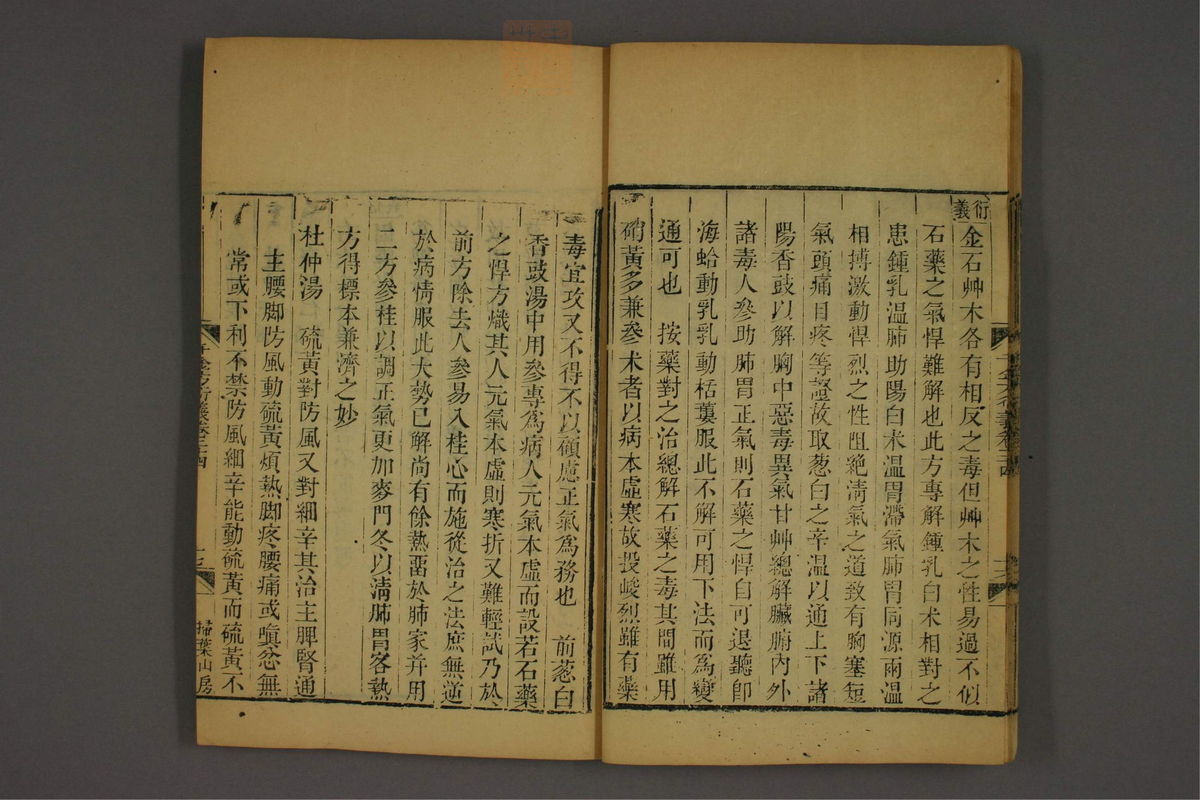 衍義
金石艸木各有相反之毒但艸木之性易過不似
石藥之氣悍難解也此方專解鍾乳白术相對之
患鍾乳溫肺助陽白术溫胃滯氣肺胃同源兩溫
相搏激動悍烈之性阻絶清氣之道致有胸塞短
氣頭痛目疼等證故取葱白之辛温以通上下諸
陽香豉以解胸中惡毒異氣甘艸總解臟腑內外
諸毒人參助肺胃正氣則石藥之悍自可退聽即
海蛤動乳乳動栝蔞服此不解可用下法而爲變
通可也　按藥對之治總解石藥之毒其間雖用
硝黃多兼參术者以病本虛寒故投峻烈雖有藥
毒宜攻又不得不以顧慮正氣爲務也　前葱白
香豉湯中用參專爲病人元氣本虛而設若石藥
之悍方熾其人元氣本虛則寒折又難輕試乃於
前方除去人參易入桂心而施從治之法庶無逆
於病情服此大勢已解尚有餘熱畱於肺家并用
二方參桂以調正氣更加麥門冬以清肺胃客熱
方得標本兼濟之妙
杜仲湯　硫黃對防風又對細辛其治主脾腎通
主腰脚防風動硫黃煩熱脚疼腰痛或嗔忿無
常或下利不禁防風細辛能動硫黃而硫黃不
千金方衍義卷二十四
掃葉山房